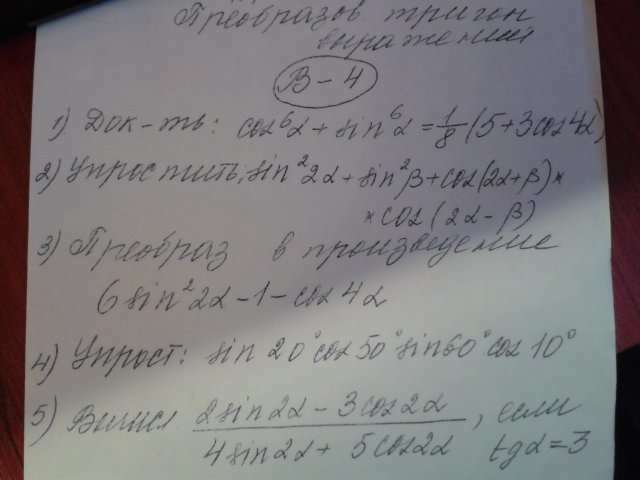 Преобразов тригон
выражений
В-4
1) Док-ть: cos⁶α + sin⁶α = 1/8 (5+3cos4α)
2) Упростить: sin²2α + sin²β + cos(2α+β)×
×cos(2α-β)
3) Преобраз в произведение
6sin²2α - 1 - cos4α
4) Упрост: sin20°cos50°sin60°cos10°
5) Вычисл (2sin2α - 3cos2α)/(4sin2α + 5cos2α), если
tgα=3